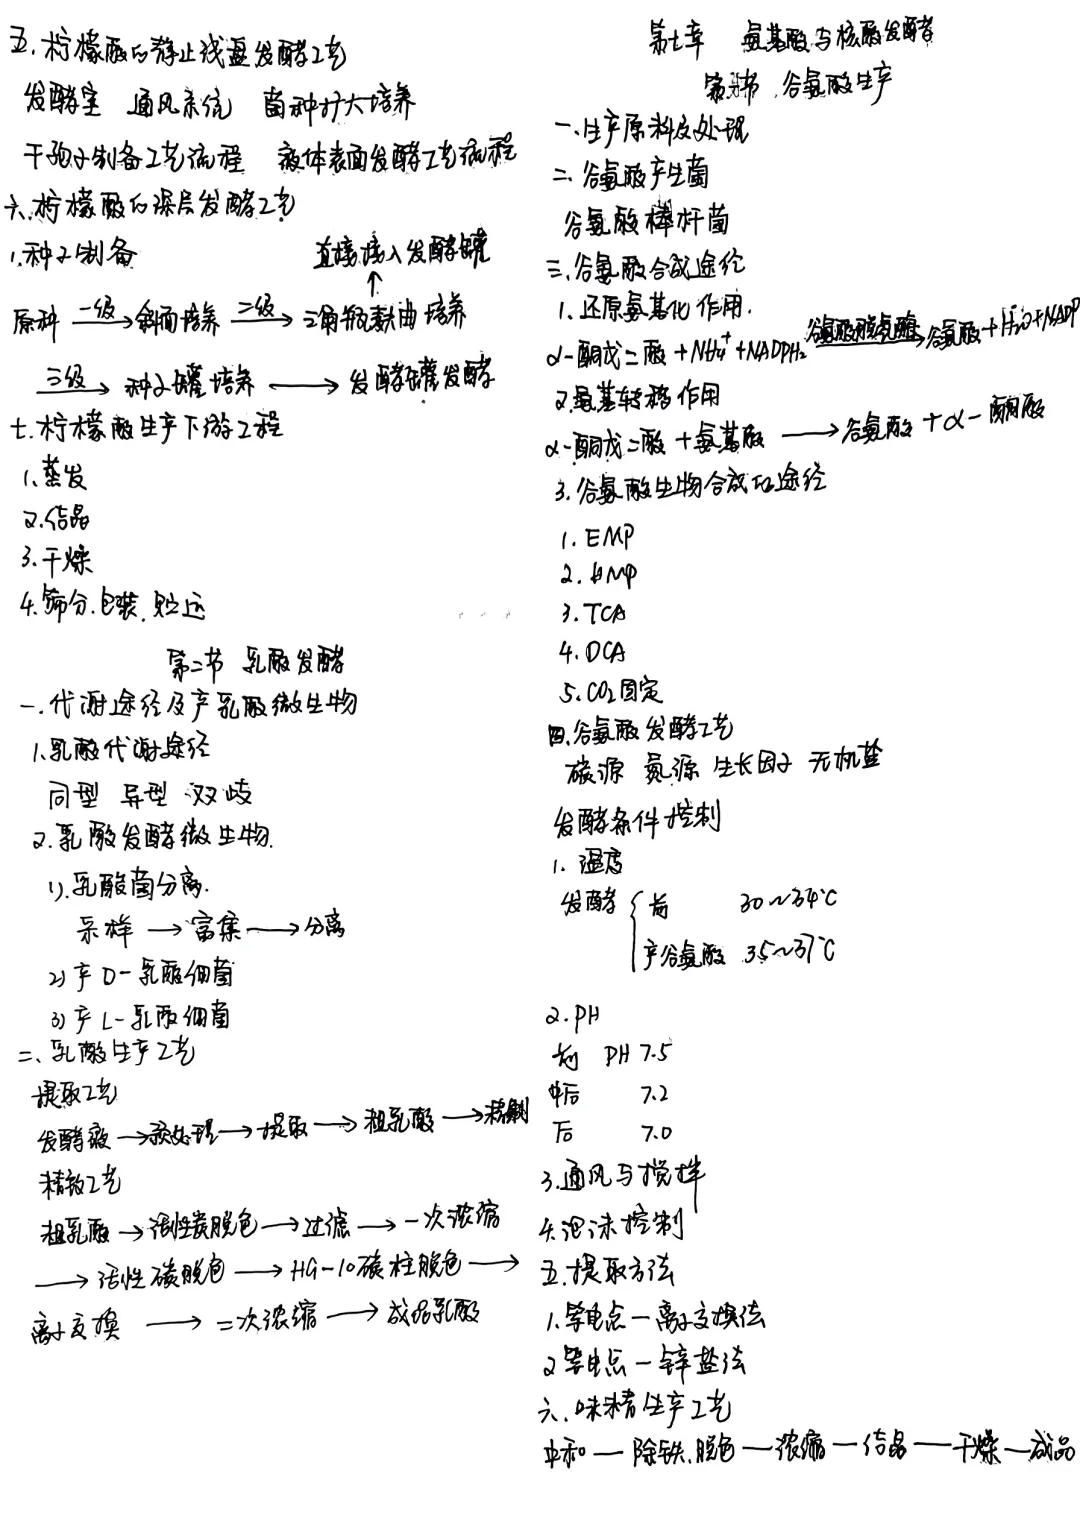 五.柠檬酸的静止浅盘发酵工艺
发酵室 通风系统 菌种扩大培养
干孢子制备工艺流程 液体表面发酵工艺流程
六.柠檬酸的深层发酵工艺
1.种子制备
直接接入发酵罐
↑
原种 一级→ 斜面培养 二级→ 三角瓶麸曲培养
三级→ 种子罐培养 ←→ 发酵罐发酵
七.柠檬酸生产下游工程
1.蒸发
2.结晶
3.干燥
4.筛分.包装.贮运
第二节 乳酸发酵
一.代谢途径及产乳酸微生物
1.乳酸代谢途径
同型 异型 双歧
2.乳酸发酵微生物.
1).乳酸菌分离.
采样 → 富集 → 分离
2)产D-乳酸细菌
3)产L-乳酸细菌
二、乳酸生产工艺
提取工艺
发酵液 → 预处理 → 提取 → 粗乳酸 → 精制
精制工艺
粗乳酸 → 活性炭脱色 → 过滤 → 一次浓缩
→ 活性碳脱色 → HG-10碳柱脱色 →
离子交换 → 二次浓缩 → 成品乳酸
第七章 氨基酸与核酸发酵
第一节.谷氨酸生产
一.生产原料及处理
二.谷氨酸产生菌
谷氨酸棒杆菌
三.谷氨酸合成途径
1.还原氨基化作用.
α-酮戊二酸+NH4⁺+NADPH₂ 谷氨酸脱氢酶→ 谷氨酸+H₂O+NADP
2.氨基转移作用
α-酮戊二酸+氨基酸 → 谷氨酸+α-酮酸
3.谷氨酸生物合成的途径
1.EMP
2.HMP
3.TCA
4.DCA
5.CO₂固定
四.谷氨酸发酵工艺
碳源 氮源 生长因子 无机盐
发酵条件控制
1.温度
发酵 { 前 30~34℃
产谷氨酸 35~37℃
2.PH
前 PH 7.5
中后 7.2
后 7.0
3.通风与搅拌
4.泡沫控制
五.提取方法
1.等电点-离子交换法
2等电点-锌盐法
六.味精生产工艺
中和—除铁.脱色—浓缩—结晶—干燥—成品